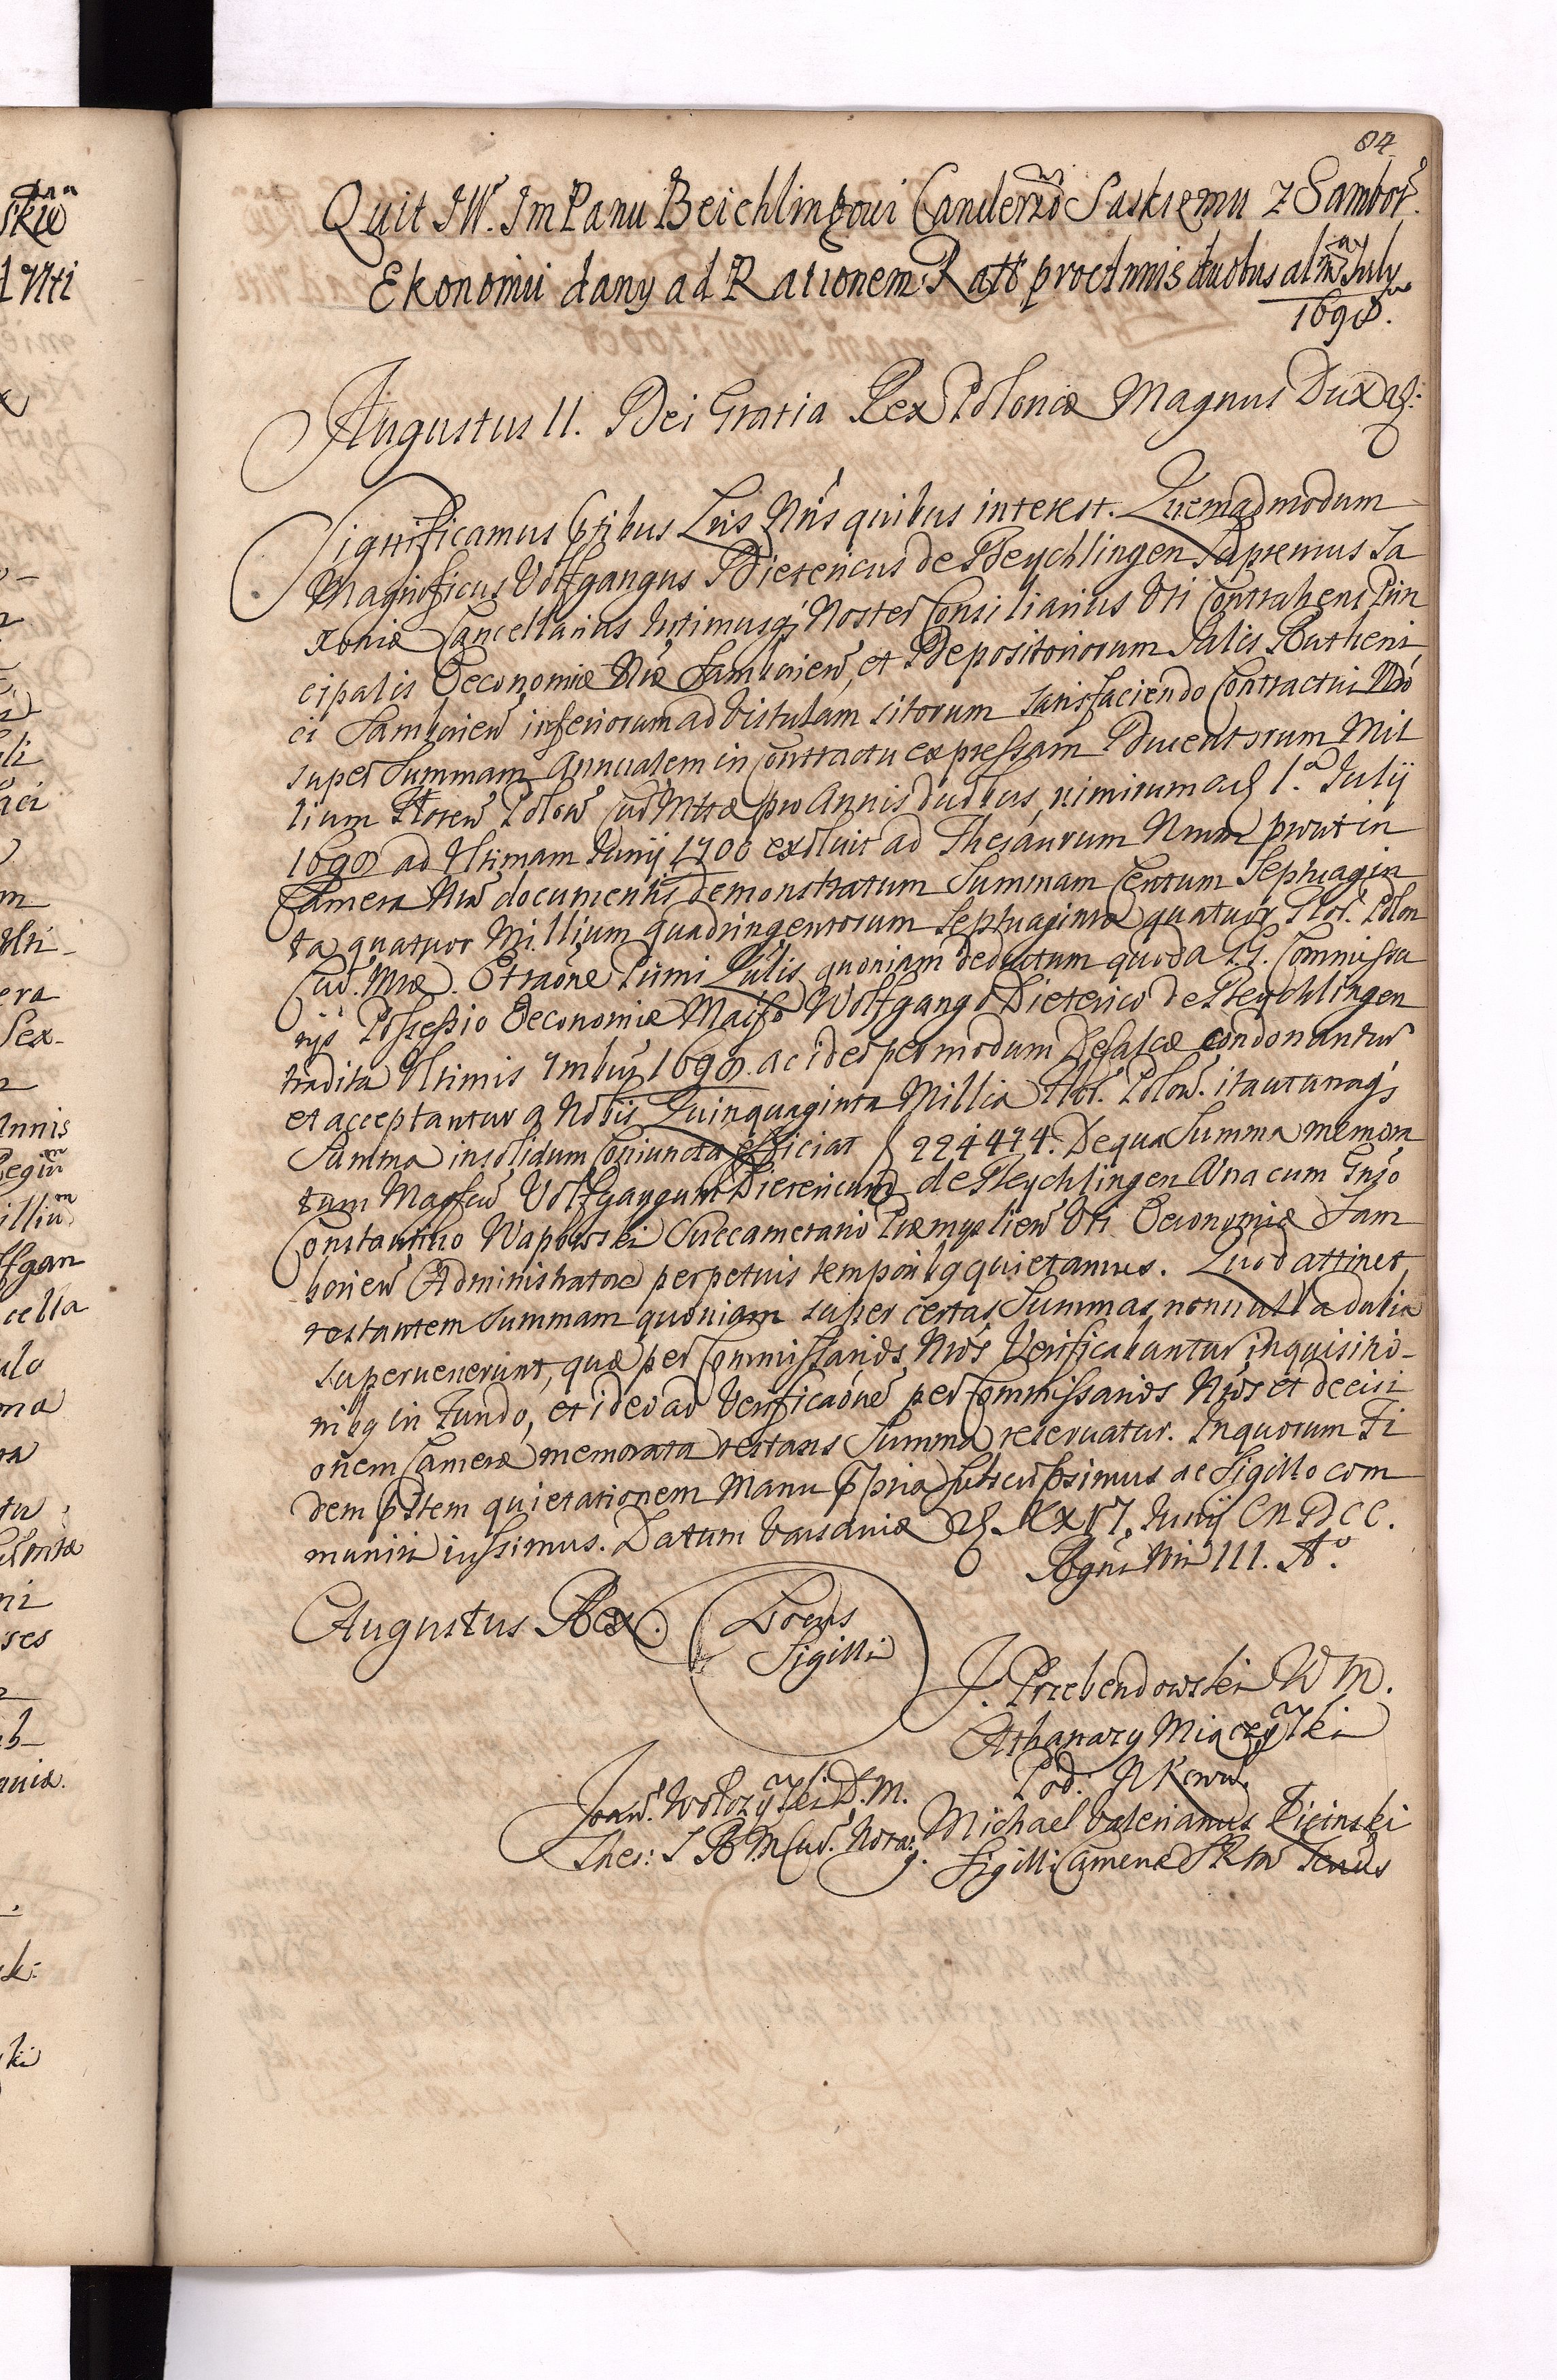 84
Quit JW. Im Panu Beichlingowi Canclerzo Saskiemu z Sambor.
Ekonomii dany ad Rationem Ratt pro Annis duobus a 1ma July
1698.
Augustus II. Dei Gratia Rex Poloniæ Magnus Dux etc:
Significamus pntibus Lris Nris quibus interest. Quemadmodum
Magnificus Volfgangus Dietericus de Beychlingen Supremus Sa
xoniæ Cancellarius Intimusq Noster Consiliarius Uti Contrahens Prin
cipalis Oeconomiæ Nræ Samborien, et Depositoriorum Salis Rutheni
ci Samborien inferiorum ad Vistulam sitorum satisfaciendo Contractui Nro
super Summam Annualem in Contractu expressam Ducentorum Mil
lium Floren Polon Cur Nttæ pro Annis duobus, nimirum a d 1.a Julij
1698 ad Ultimam Junij 1700 exoluit ad Thesaurum Nrum prout in
Camera Nra documentis demonstratum Summam Centum Septuagin
ta quatuor Millium quadringentorum Septuaginta quatuor Flor. Polon
Cur. Mtæ. Et raõne Primi Qulis quoniam deductum quod a G. Commissa
rijs Possessio Oeconomiæ Maifco Wolfgango Dieterico de Beychlingen
tradita Ultimis Xmbris 1698. ac ideo per modum Defalcæ condonantur
et acceptantur a Nobis Quinquaginta Millia Flor. Polon. ita ut unaqs
Summa insolidum Coniuncta efficiat f 224474. De qua Summa memora
tum Magfcum Volfgangum Dietericum de Beychlingen Una cum Gnso
Constantino Wapowski Succamerario Præmyslien Uti Oeconomiæ Sam
borien Administratore perpetuis temporibq quietamus. Quod attinet
restantem Summam quoniam super certas Summas nonnulla dubia
superuenerunt, quæ per Commissarios Nros Verificabuntur inquisitio-
nibq in Fundo, et ideo ad Verificaõne per Commissarios Nros et decisi
onem Cameræ memorata restans Summa reseruatur. In quorum Fi
dem pntem quietationem Manu ppria Subscripsimus ac Sigillo com
muniri iussimus. Datum Varsaviæ d XXVI. Junij MDCC.
Regni Nri III. Ao.
Augustus Rex.
Locus
Sigilli
J. Przebendowski W M.
Athanazy Miączyński
Pod. N Koron.
Joan. Wolczyński S. M.
Thes: S R M Cur. Nota:
Michael Valerianus Ficinski
Sigilli Cameræ S R M Tenens